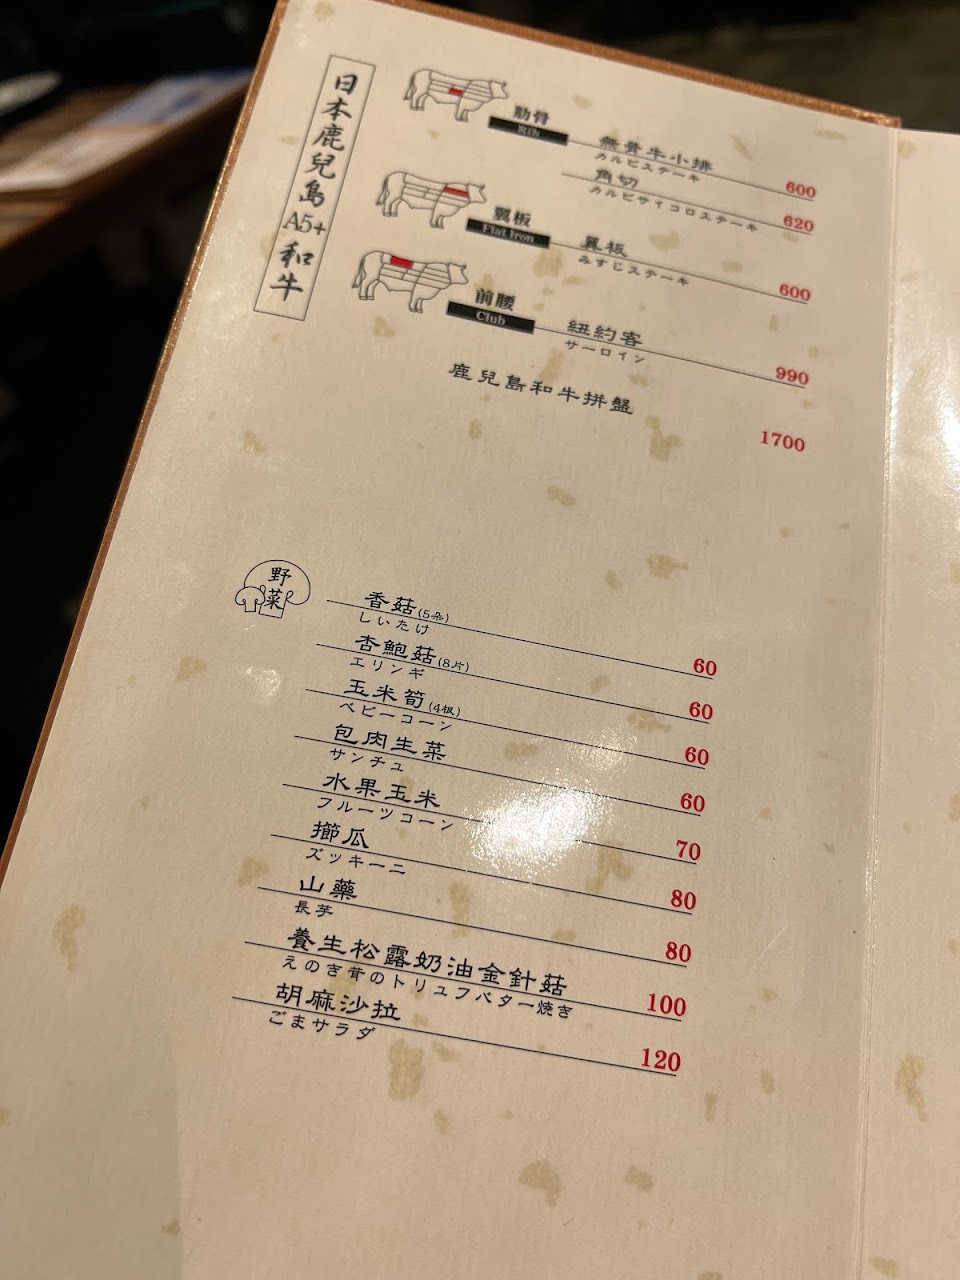 日本鹿兒島A5+和牛
肋骨
Rib
無骨牛小排
カルビステーキ
600
角切
カルビサイコロステーキ
620
翼板
Flat Iron
翼板
みすじステーキ
600
前腰
Club
紐約客
サーロイン
990
鹿兒島和牛拼盤
1700
野菜
香菇(5朵)
しいたけ
60
杏鮑菇(8片)
エリンギ
60
玉米筍(4根)
ベビーコーン
60
包肉生菜
サンチュ
60
水果玉米
フルーツコーン
70
櫛瓜
ズッキーニ
80
山藥
長芋
80
養生松露奶油金針菇
えのき茸のトリュフバター焼き
100
胡麻沙拉
ごまサラダ
120